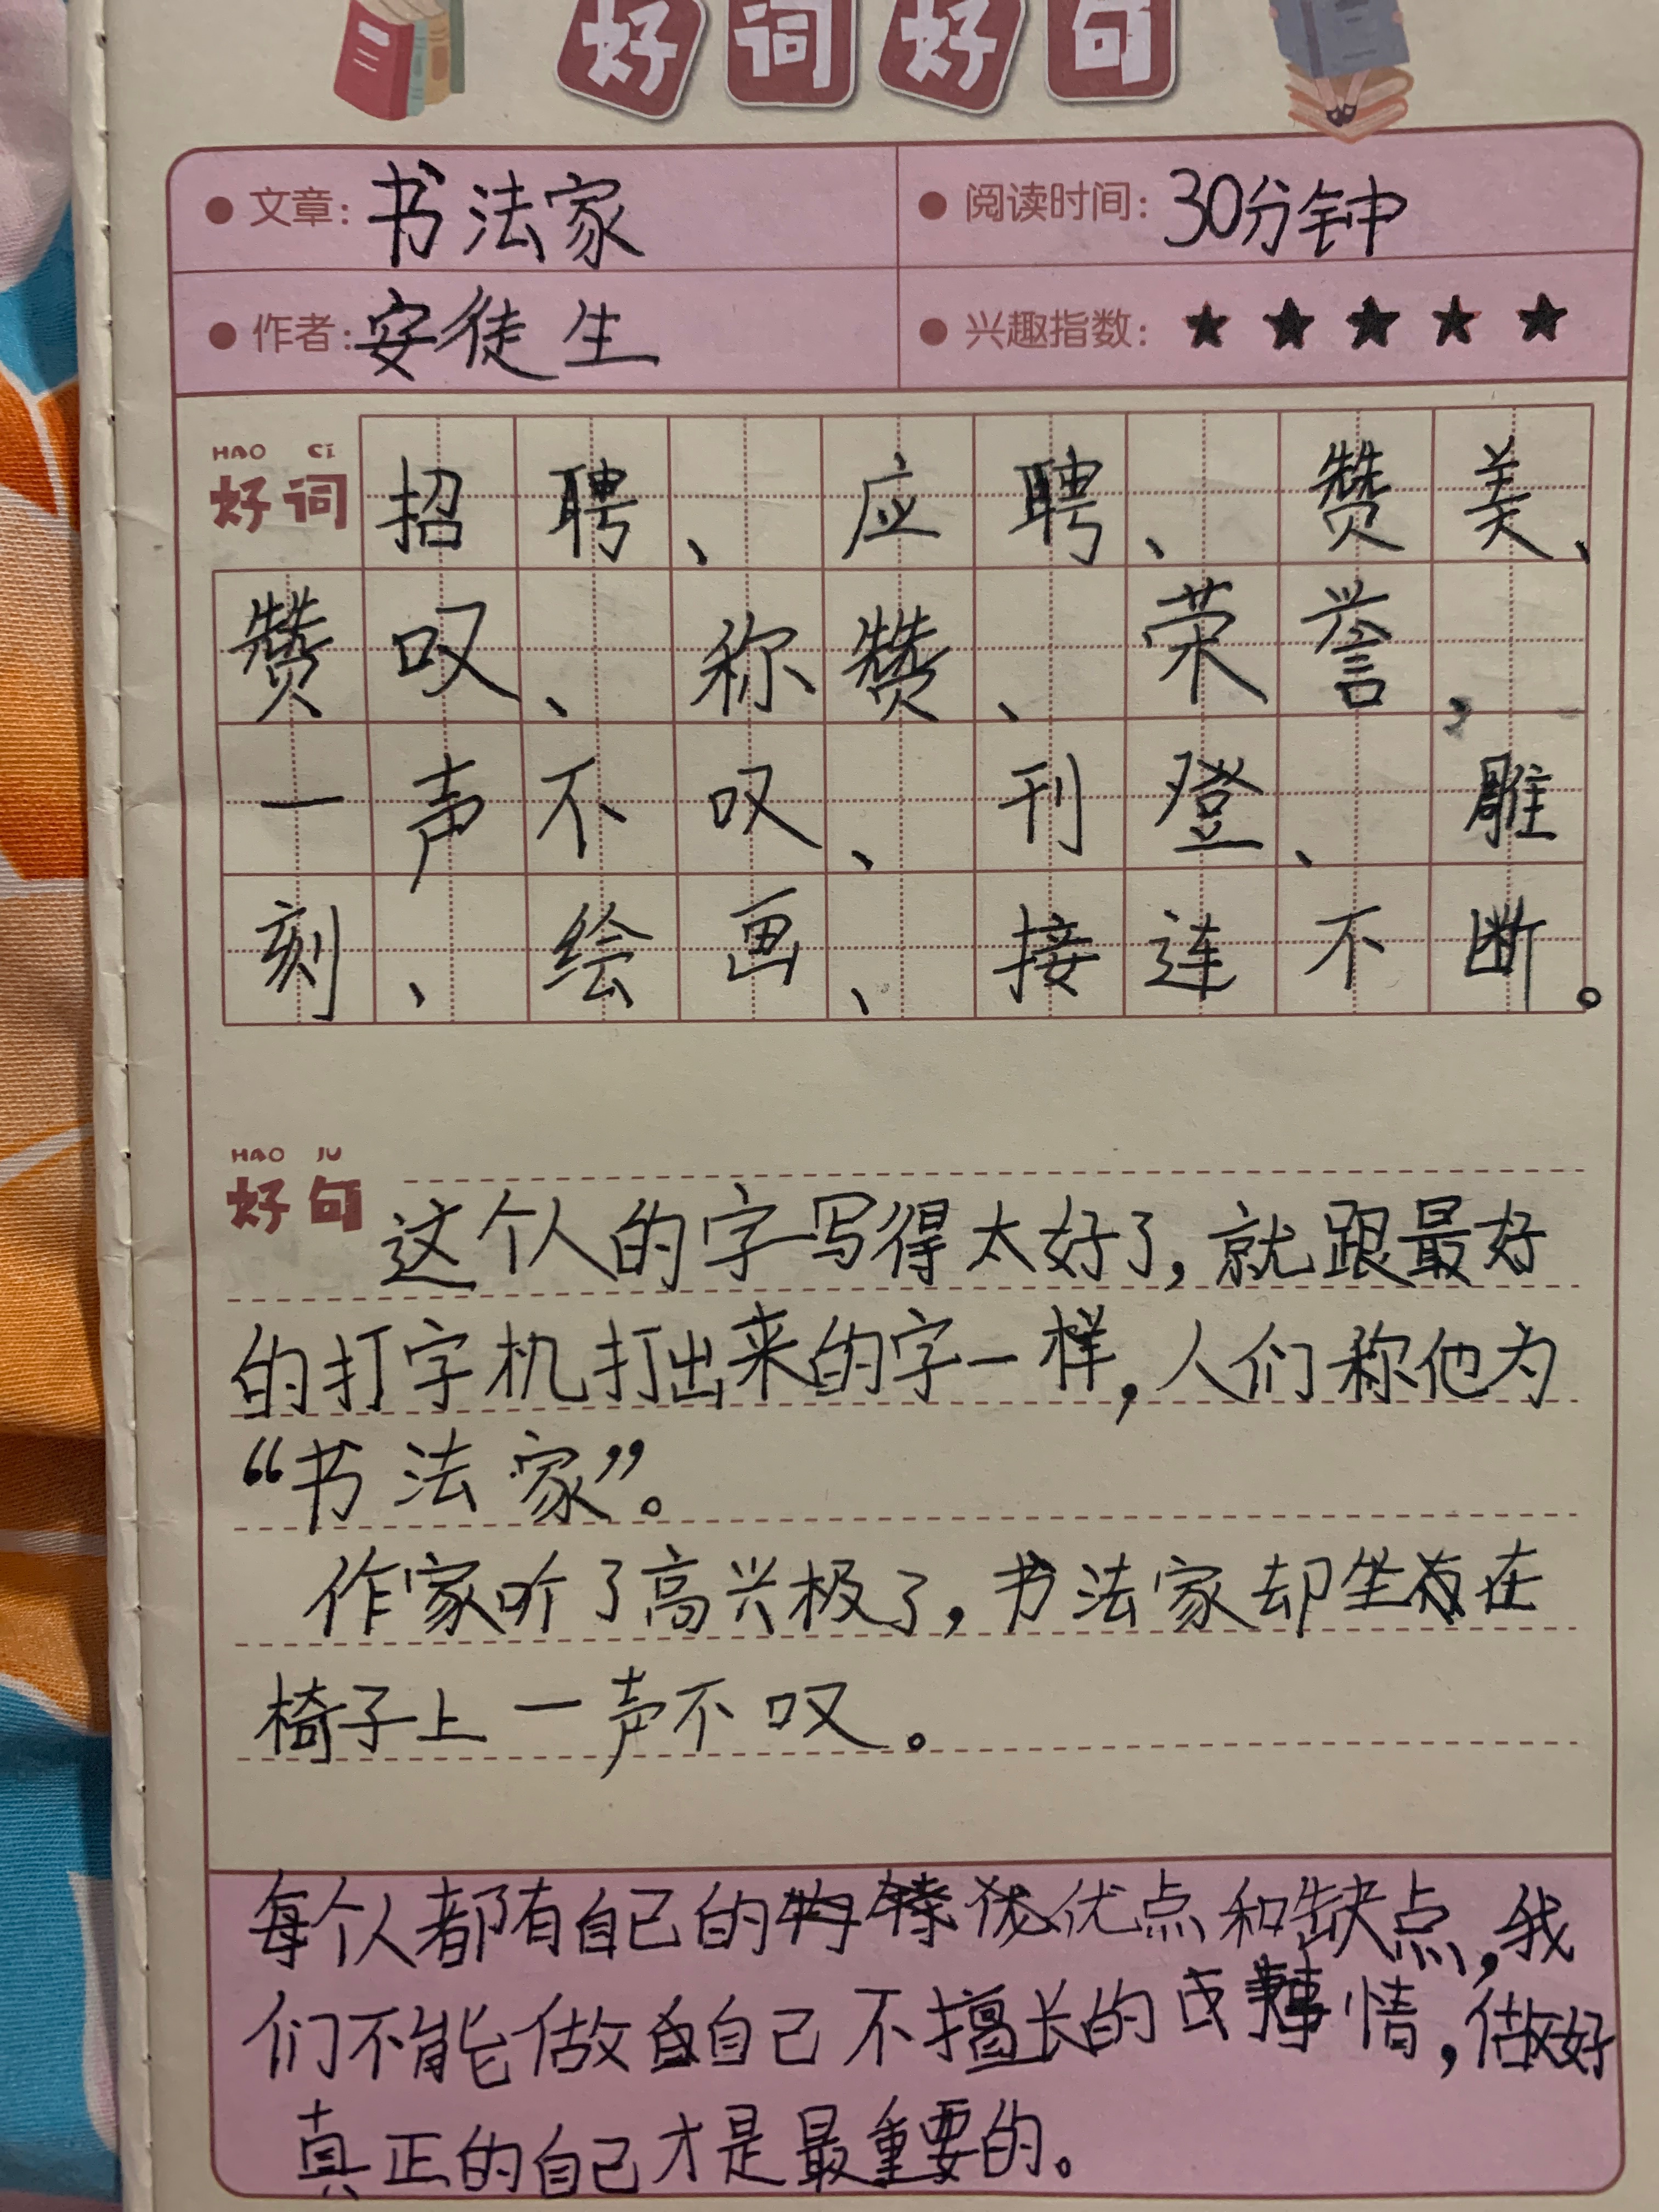 好词好句
文章：书法家
阅读时间：30分钟
作者：安徒生
兴趣指数：★★★★★
HAO CI
好词 招聘、应聘、赞美、
赞叹、称赞、荣誉、
一声不叹、刊登、雕
刻、绘画、接连不断。
HAO JU
好句 这个人的字写得太好了，就跟最好
的打字机打出来的字一样，人们称他为
“书法家”。
作家听了高兴极了，书法家却坐在
椅子上一声不叹。
每个人都有自己的优点和缺点，我
们不能做自己不擅长的事情，做好
真正的自己才是最重要的。